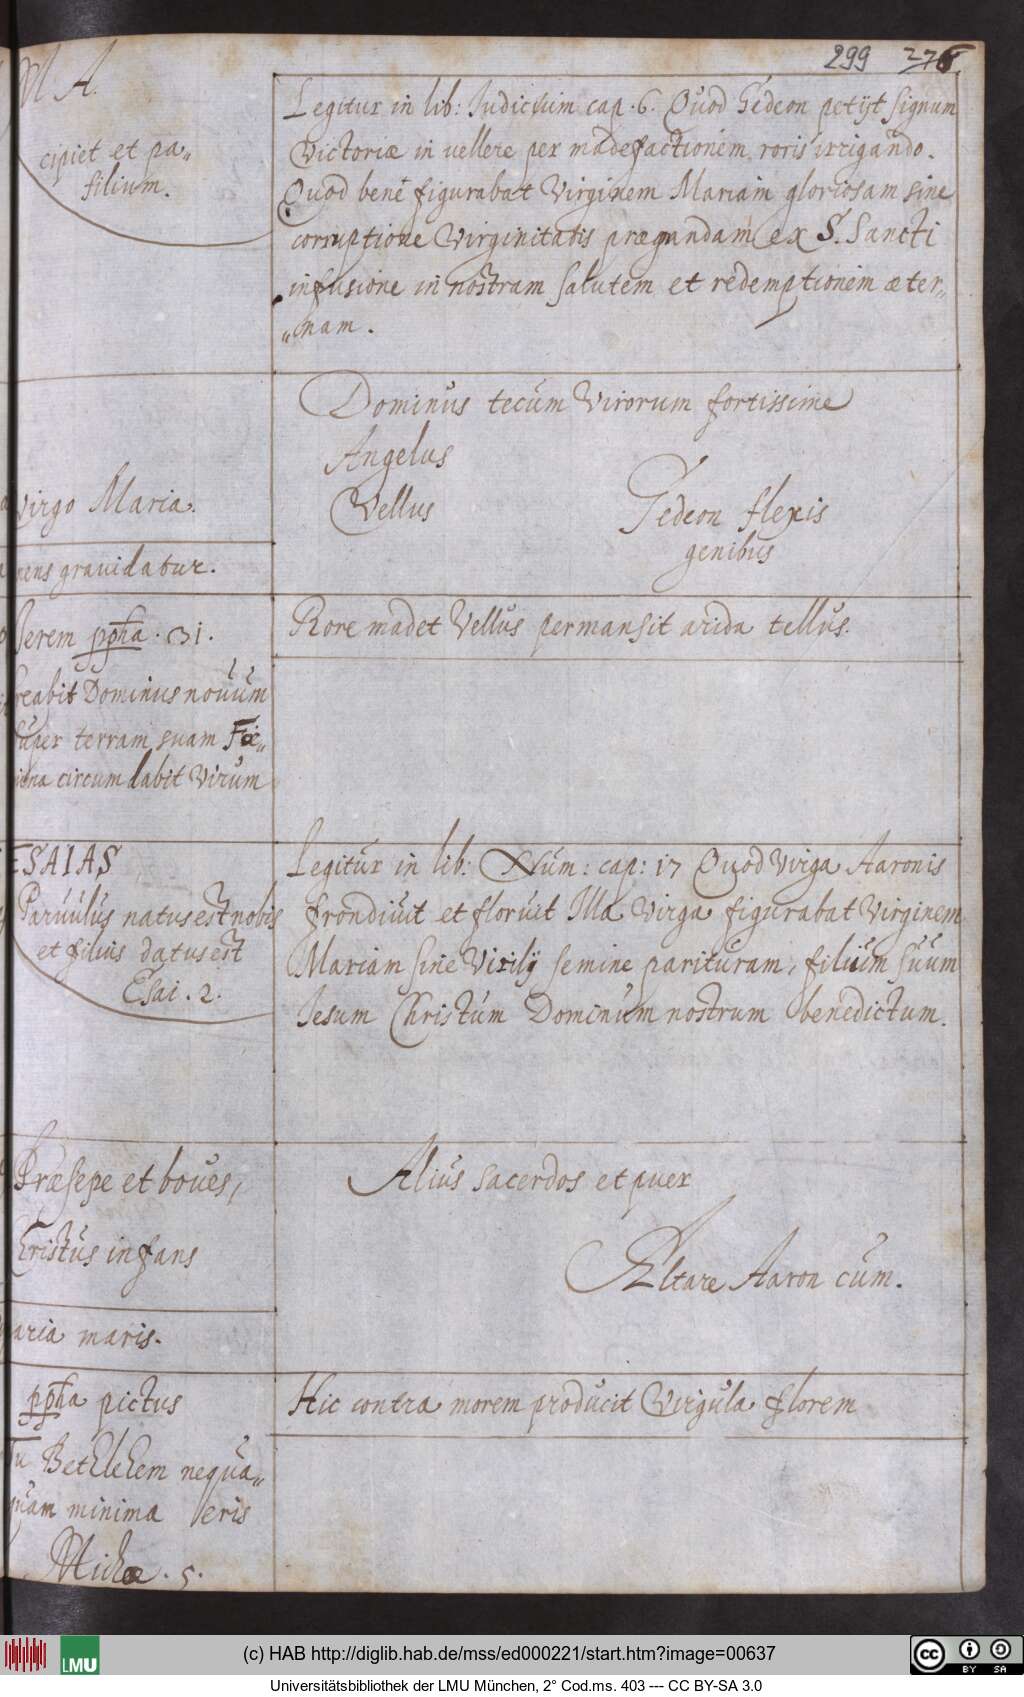 299 276
M A.
cipiet et pa„
filium.
Legitur in lib: Judicium cap. 6. Quod Gedeon petijt signum
Victoriæ in vellere per madefactionem roris irrigando.
Quod bene figurabat Virginem Mariam gloriosam sine
corruptione Virginitatis prægnandam ex S. Sancti
infusione in nostram salutem et redemptionem æter„
„nam.
Dominus tecum Virorum fortissime
Angelus
Vellus
Gedeon flexis
genibus
Virgo Maria.
nens gravidatur.
Rore madet Vellus permansit arida tellus.
Jerem ppha. 31.
reabit Dominus novum
super terram suam Fœ„
mina circumdabit Virum
ESAIAS
Parvulus natus est nobis
et filius datus est
Esai. 2.
Legitur in lib: Num: cap: 17 Quod Virga Aaronis
fronduit et floruit Illa Virga figurabat Virginem
Mariam sine Virilij semine parituram, filium suum
Jesum Christum Dominum nostrum benedictum.
Præsepe et boves,
Cristus infans
aria maris.
Alius sacerdos et puer
Altare Aaron cum.
ppha pictus
Tu Bethlehem nequa„
quam minima eris
Michæ. 5.
Hic contra morem producit Virgula florem
(c) HAB http://diglib.hab.de/mss/ed000221/start.htm?image=00637
Universitätsbibliothek der LMU München, 2° Cod.ms. 403 --- CC BY-SA 3.0
LMU
cc BY SA